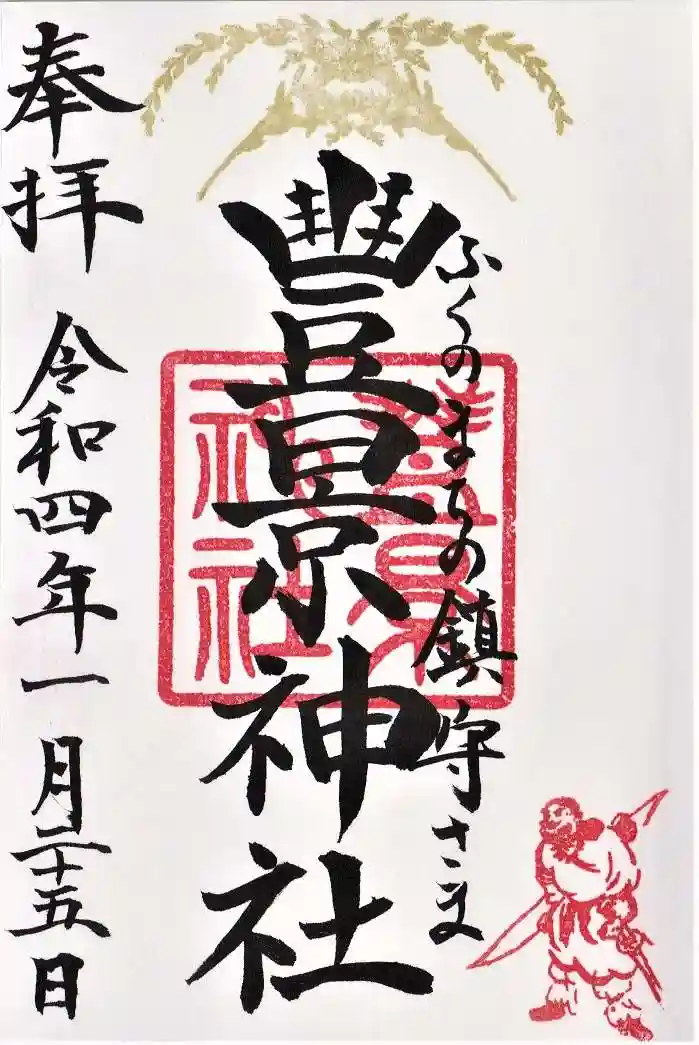 ふくのまちの鎮守さま
豐景神社
豐景
神社
奉拝 令和四年一月二十五日